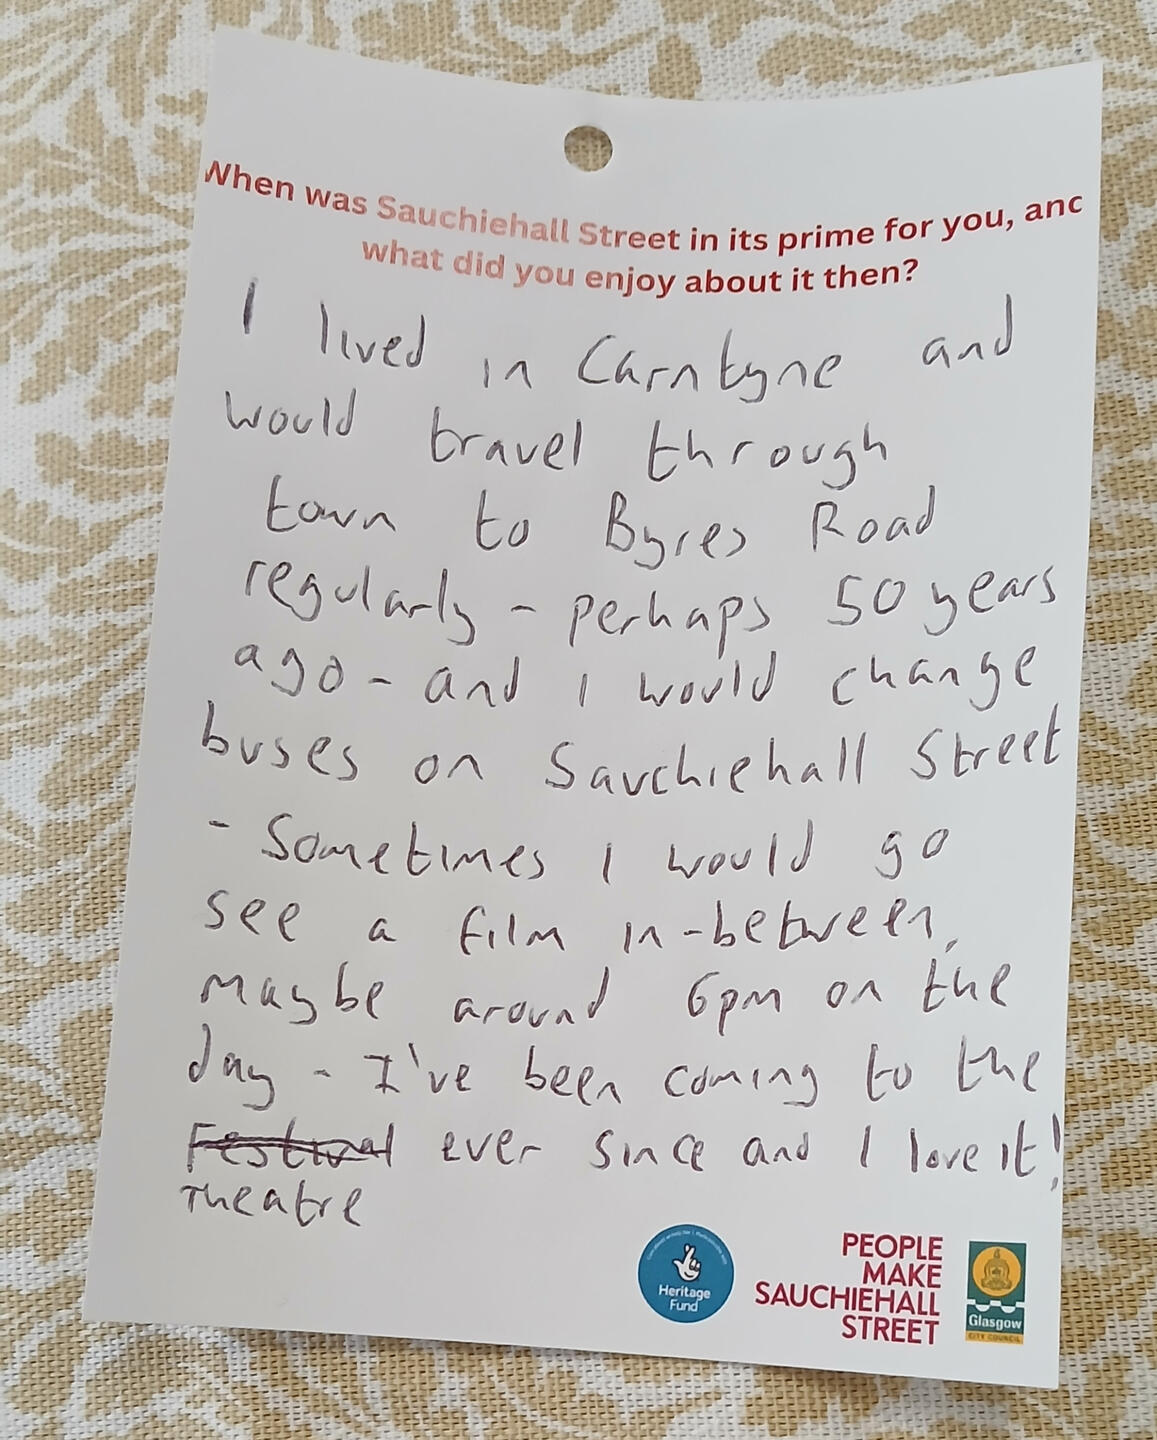 When was Sauchiehall Street in its prime for you, and
what did you enjoy about it then?
I lived in Carntyne and
would travel through
town to Byres Road
regularly - perhaps 50 years
ago - and I would change
buses on Sauchiehall Street
- Sometimes I would go
see a film in-between,
maybe around 6pm on the
day - I've been coming to the
Festival ever since and I love it!
Theatre
Heritage
Fund
PEOPLE
MAKE
SAUCHIEHALL
STREET
Glasgow
CITY COUNCIL